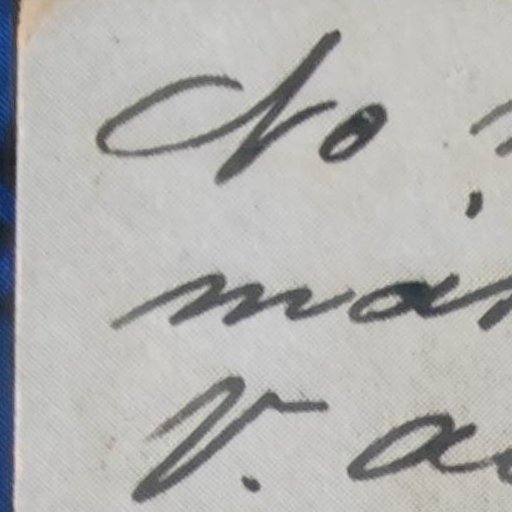 No
ma
V. a